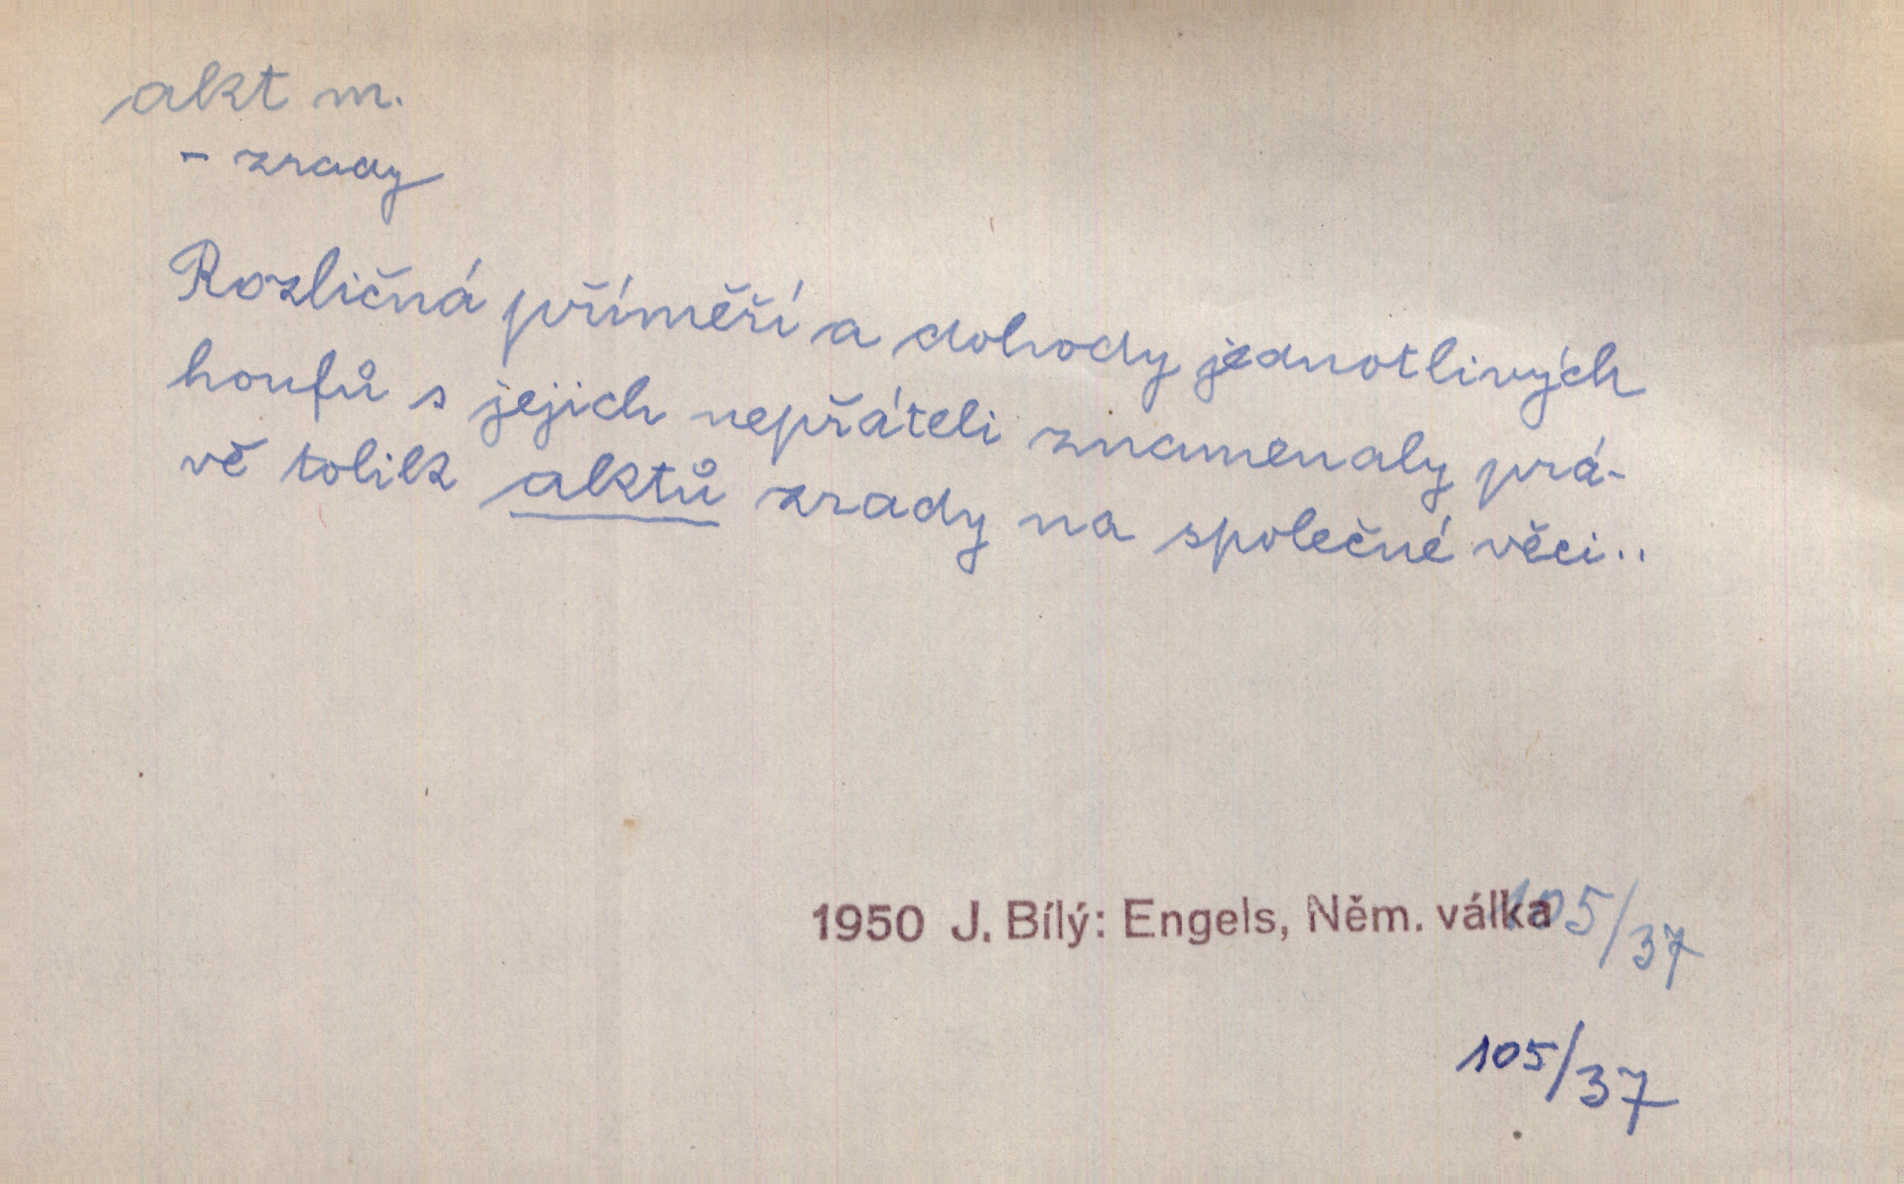 akt m.
- zrady
Rozličná příměří a dohody jednotlivých
houfů s jejich nepřáteli znamenaly prá-
vě tolik aktů zrady na společné věci..
1950 J. Bílý: Engels, Něm. válka 105/37
105/37